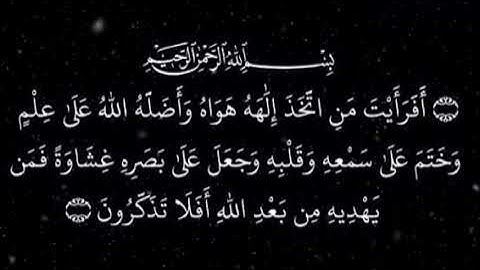 بِسْمِ اللهِ الرَّحْمٰنِ الرَّحِيْمِ
۝ أَفَرَأَيْتَ مَنِ اتَّخَذَ إِلَٰهَهُ هَوَاهُ وَأَضَلَّهُ اللهُ عَلَىٰ عِلْمٍ
وَخَتَمَ عَلَىٰ سَمْعِهِ وَقَلْبِهِ وَجَعَلَ عَلَىٰ بَصَرِهِ غِشَاوَةً فَمَن
يَهْدِيهِ مِن بَعْدِ اللهِ أَفَلَا تَذَكَّرُونَ ۝